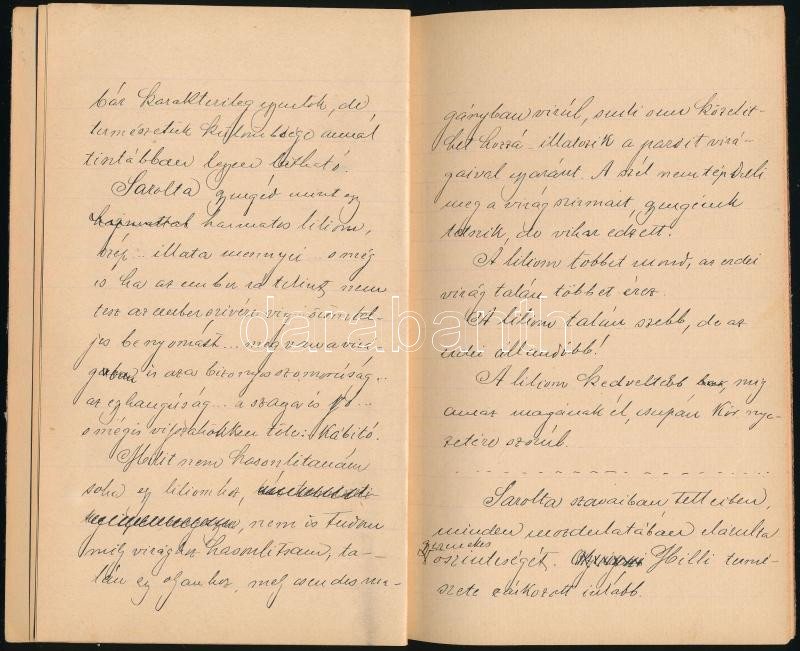 bár karakterileg egyenlők, de
természetük külömbsége annál
tisztábban legyen látható.
Sarolta gyengéd mint egy
harmatos liliom,
szép... illata mennyei... s még
is ha az ember rá tekint, nem
tesz az ember szivére vig örömtel-
jes benyomást... meg van a virá-
gban is az a bizonyos szomorúság...
az egyhangúság... a szaga is jó...
s mégis visszahökken tőle: Kábító.
Hilit nem hasonlitanám
soha egy liliomhoz,
nem is tudom
mily virághoz hasonlitsam, ta-
lán egy olyanhoz, mely csendes ma-
gányban virúl, senki sem közelit-
het hozzá - illatozik a pázsit virá-
gaival egyaránt. A szél nem tépdeli
meg a virág szirmait, gyengének
tetszik, de vihar edzett.
A liliom többet mond, az erdei
virág talán többet érez.
A liliom talán szebb, de az
erdei állandóbb!
A liliom kedveltebb, mig
amaz magának él, csupán Kör nye-
zetére szorúl.
Sarolta szavaiban tetteiben,
minden mozdulatában elárulta
gyermekes
őszinteségét. Hilli termé-
szete zárkozott inkább.
darabanth